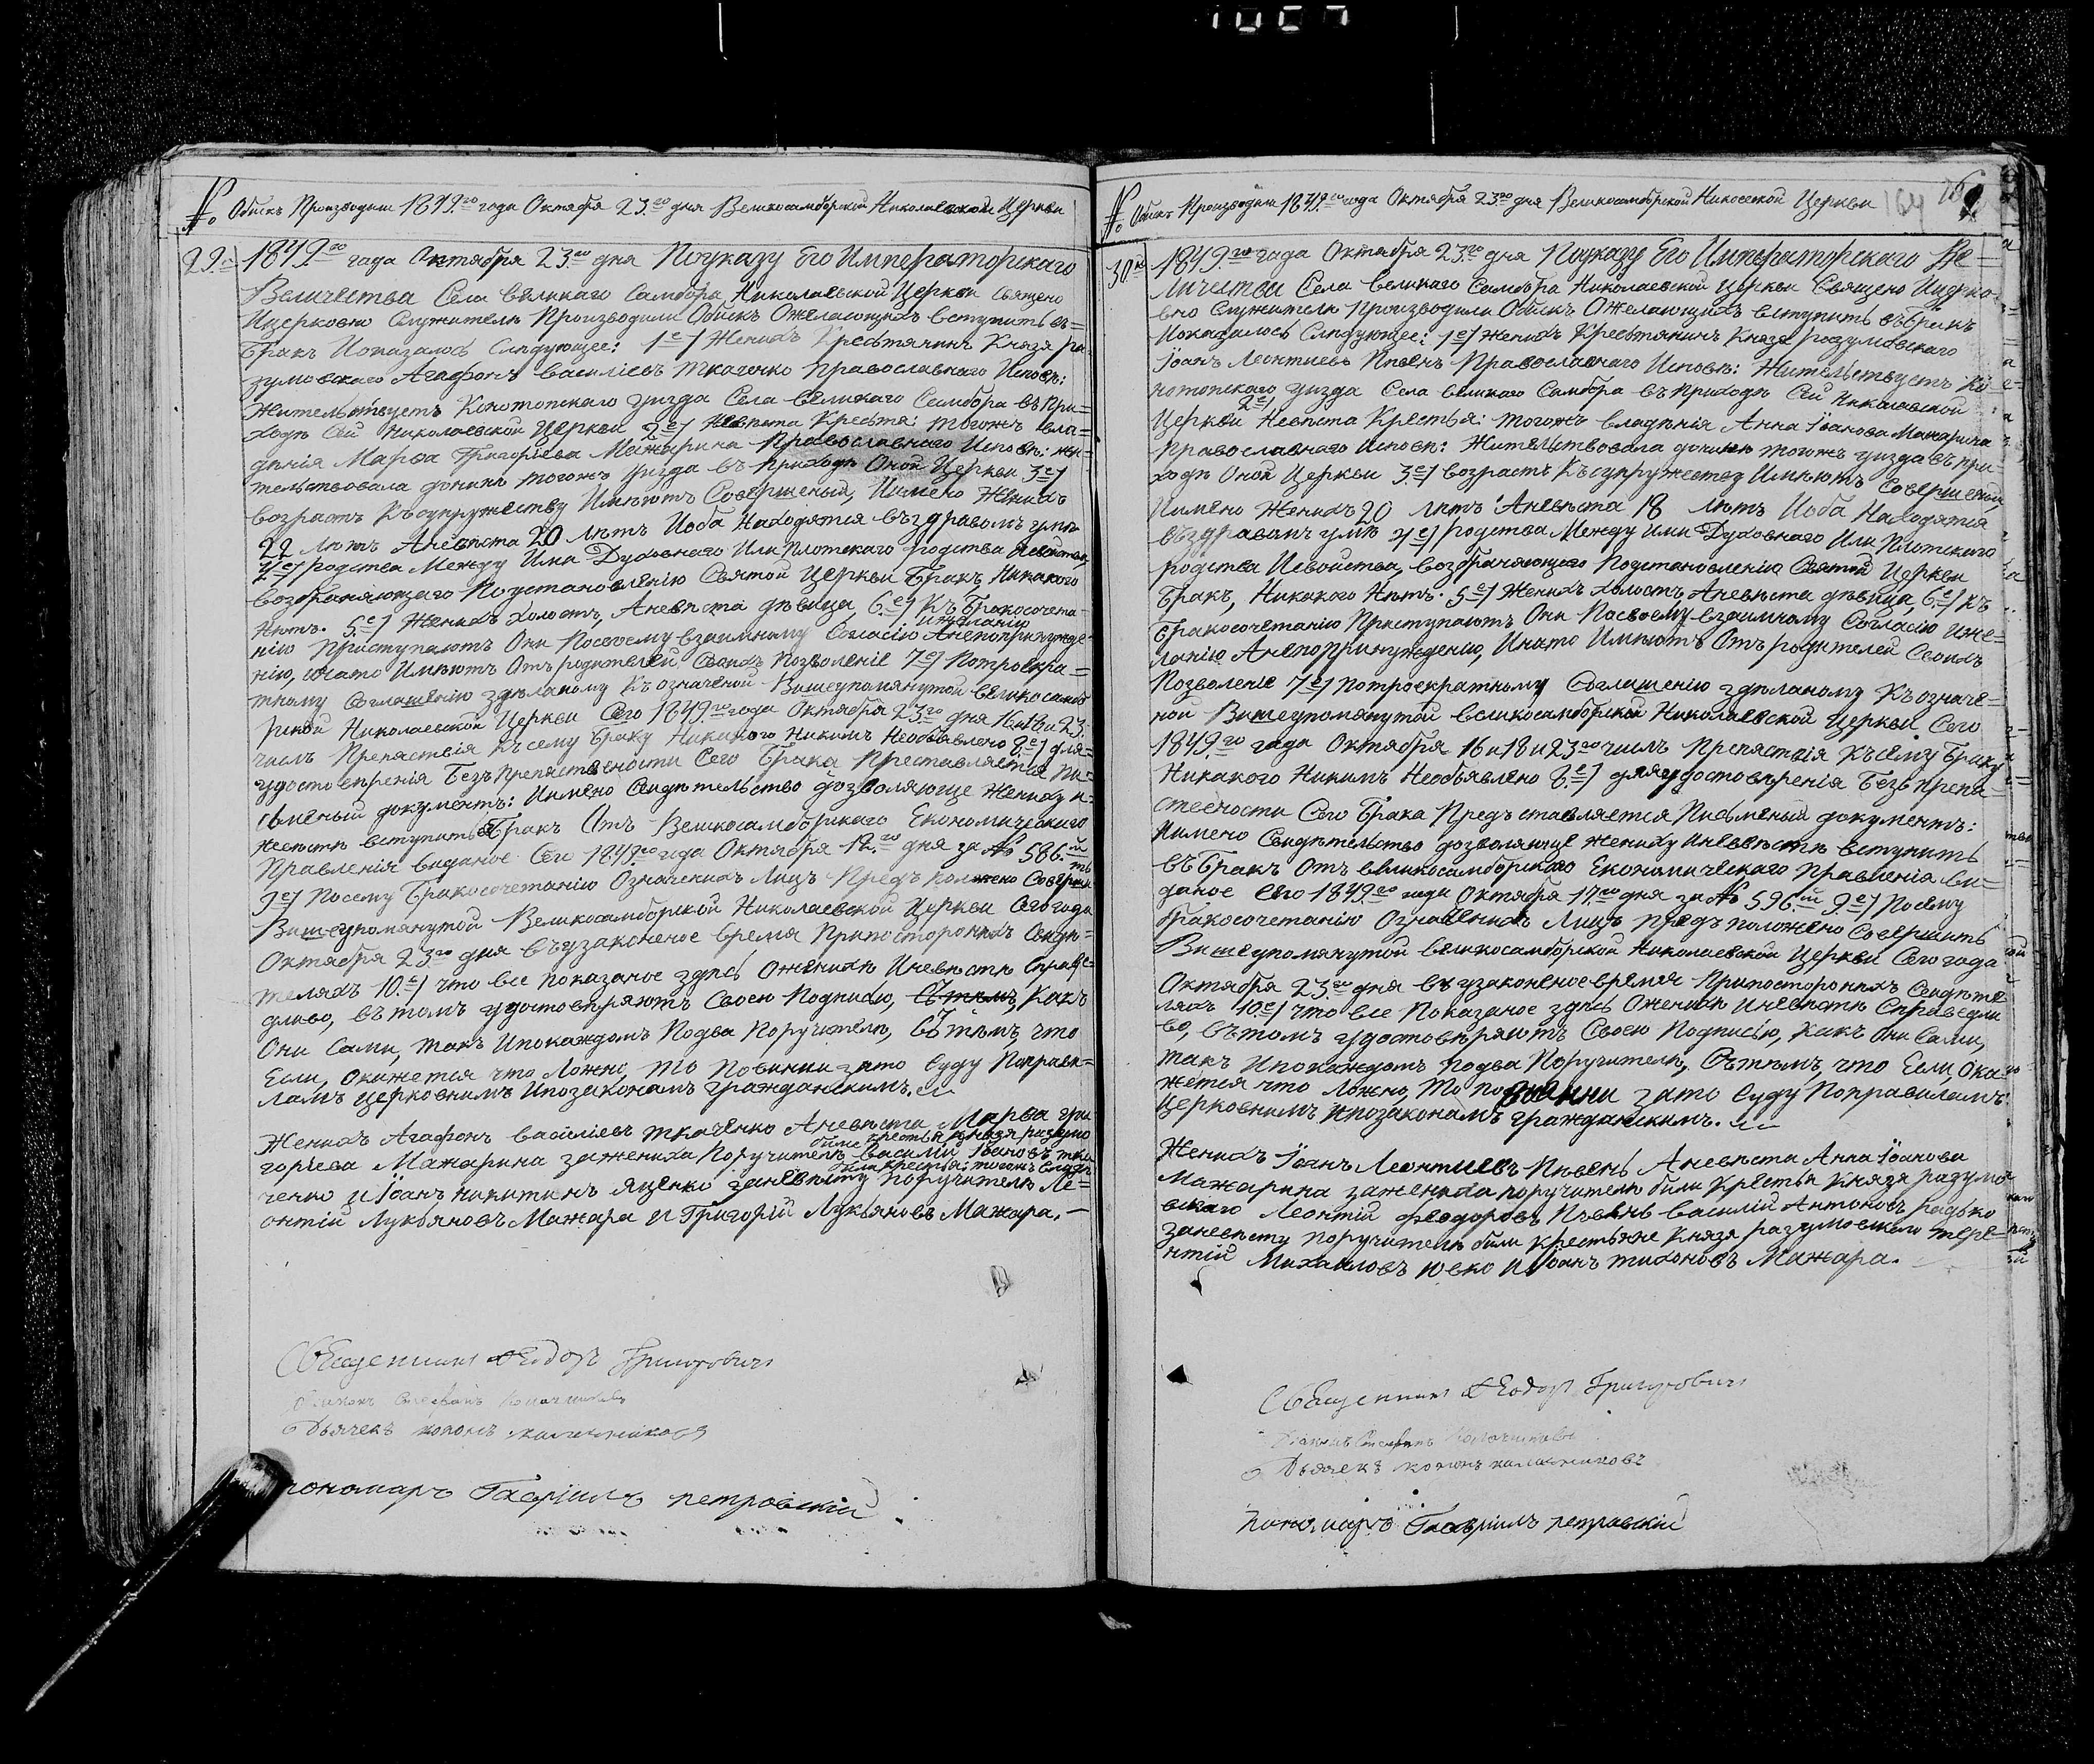 № Обыскъ Произведен 1849.го года Октября 23.го дня Великосамборской Николаевской Церкви
29.й 1849.го года Октября 23.го дня Поуказу Его Императорскаго
Величества Села великаго Самбора Николаевской Церкви Священо
Ицерковно Служители Производили Обыскъ Ожелающихъ вступить въ=
Бракъ Иоказалось Следующее: 1е) Женихъ Крестянинъ Князя ра=
зумовскаго Агафонъ василіевъ ткаченко Православнаго Исповъ:
Жительствуетъ Конотопскаго уизда Села великаго Самбора въ При=
ходѣ Сей Николаевской Церкви 2е) Невѣста Крестья: тогожъ вла=
дѣнія Марѳа Григоріева Мажарина Православнаго Исповѣ: жи=
тельствовала донинѣ тогожъ уизда въ Приходѣ Оной Церкви 3е)
возрастъ Късупружеству Имѣютъ Совершеный, Иимено Женихъ
22 лѣтъ Аневѣста 20 лѣтъ Иоба Находятся въздравомъ умѣ
4е) родства Между Ими Духовнаго Или Плотскаго родства Исвойства,
возбраняющаго Поустановленію Святой Церкви Бракъ Никакого
Нѣтъ. 5е) Женихъ Холостъ, Аневѣста дѣвица, 6.е) Къ Бракосочета=
Ижеланію
нію Приступаютъ Они Посвоему взаимному Согласію Анепопринужде=
нію, Инато Имѣютъ Отъ родителей Своихъ Позволеніе 7е) Потроекра=
тному Соглашенію здѣланому Къ означеной Вишеупомянутой великосамбо
рской Николаевской Церкви Сего 1849.го года Октября 23го дня 16.18и 23.
числъ Препяствія Късему Браку Никакого Никимъ Необявлено 8.е) для=
удостовѣренія Безъ Препяствености Сего Брака Преставляется Пи=
сьменый документъ: Иимено Свидѣтельство дозволяюще Жениху и=
невѣстѣ вступитьвъБракъ Отъ Великосамборскаго Економическаго
Правленія виданое Сего 1849.го года Октября 12.го дня за № 586.й
9е) Посему Бракосочетанію Означенихъ Лицъ Предъ положено Совершить
Вишеупомянутой Великосамборской Николаевской Церкви Сего года
Октября 23.го дня въузаконеное время Припостороннихъ Свидѣ=
теляхъ 10.е) что все Показаное здѣсь Оженихѣ Иневѣстѣ Справе=
дливо, вътомъ удостовѣряютъ Своею Подписю, Какъ
Они Сами, такъ Ипокаждомъ Подва Поручителя, Сътѣмъ, что
Если, окажется что Ложно, то Повинни зато Суду Поправи=
ламъ Церковнимъ Ипозаконамъ Гражданскимъ.
Женихъ Агафонъ василіевъ ткаченко Аневѣста Марѳа гри
били Крестья Князя разумо
горіева Мажарина зажениха Поручители Василій Іоановъ тка
били Крестья: тогожъ владѣ
ченко и Іоанъ никитинъ яценко заневѣсту Поручители Ле=
онтій Лукьяновъ Мажара и Григорій Лукьяновъ Мажара. —
Священникъ Ѳеодоръ Григоровичъ
Дьячекъ кононъ калачниковъ
пономаръ Гавріилъ петровскій
164
№ Обыскъ Произведен 1849.го года Октября 23.го дня Великосамборской Никоевской Церкви
30.й 1849.го года Октября 23.го дня Поуказу Его Императорскаго Ве=
личества Села великаго Самбора Николаевской Церкви Священо Ицерко=
вно Служители Производили Обыскъ Ожелающихъ вступить въБракъ
Иоказалось Следующее: 1е) Женихъ Крестянинъ Князя разумовскаго
Іоанъ Леонтиевъ Пѣвень Православнаго Исповѣ: Жительствуетъ Ко
нотопскаго уизда Села великаго Самбора въ Приходѣ Сей Николаевской
2е)
Церкви Невѣста Крестья: тогожъ владѣнія Анна Іоанова Мажарина
Православнаго Исповѣ: Жительствовала донинѣ тогожъ уизда въ при
ходѣ Оной Церкви 3.е) возрастъ Късупружеству Имѣютъ Совершеный,
Иимено Женихъ 20 лѣтъ Аневѣста 18 лѣтъ Иоба Находятся
въздравомъ умѣ 4е) родства Между Ими Духовнаго Или Плотскаго
родства Исвойства, возбраняющаго Поустановленію Святой Церкви
Бракъ, Никакого Нѣтъ. 5е) Женихъ холостъ, Аневѣста дѣвица, 6.е) Къ
Бракосочетанію Приступаютъ Они Посвоему взаимному Согласію Иже=
ланію Анепопринужденію, Инато Имѣютъ Отъ родителей Своихъ
Позволеніе 7е) Потроекратному Соглашенію здѣланому Къ означе=
ной Вишеупомянутой великосамборской Николаевской Церкви Сего
1849.го года Октября 16 и 18 и 23го числъ Препяствія Късему Браку
Никакого Никимъ Необьявлено 8.е) дляудостовѣренія Безъ Препя=
ствености Сего Брака Предъ ставляется Письменый документъ:
Иимено Свидѣтельство дозволяюще жениху Иневѣстѣ вступить
въБракъ Отъ великосамборскаго Економическаго Правленія ви=
даное Сего 1849.го года Октября 17.го дня за № 596.й 9.е) Посему
бракосочетанію Означенихъ Лицъ Предъ положено Совершить
Вишеупомянутой великосамборской Николаевской Церкви Сего года
Октября 23.го дня въузаконеное время Припостороннихъ Свидѣте
ляхъ 10е) что все Показаное здѣсь Оженихѣ Иневѣстѣ Справедли
во, вътомъ удостовѣряютъ Своею Подписію, Какъ Они Сами,
такъ Ипокаждомъ Подва Поручителя, Сътѣмъ, что Если, Ока=
жется что Ложно, то повинни зато Суду Поправиламъ
Церковнимъ Ипозаконамъ Гражданскимъ.
Женихъ Іоанъ Леонтиевъ Пѣвень Аневѣста Анна Іоанова
Мажарина зажениха поручители били Крестья Князя разумо
вскаго Леонтій Феодоровъ Пѣвень василій Антоновъ радько
заневѣсту Поручители били Крестьяне Князя разумовскаго тере=
нтій Михаиловъ ювко и Іоанъ тихоновъ Мажара.
Священникъ Ѳеодоръ Григоровичъ
Дьячекъ кононъ калачниковъ
пономаръ Гавріилъ петровскій